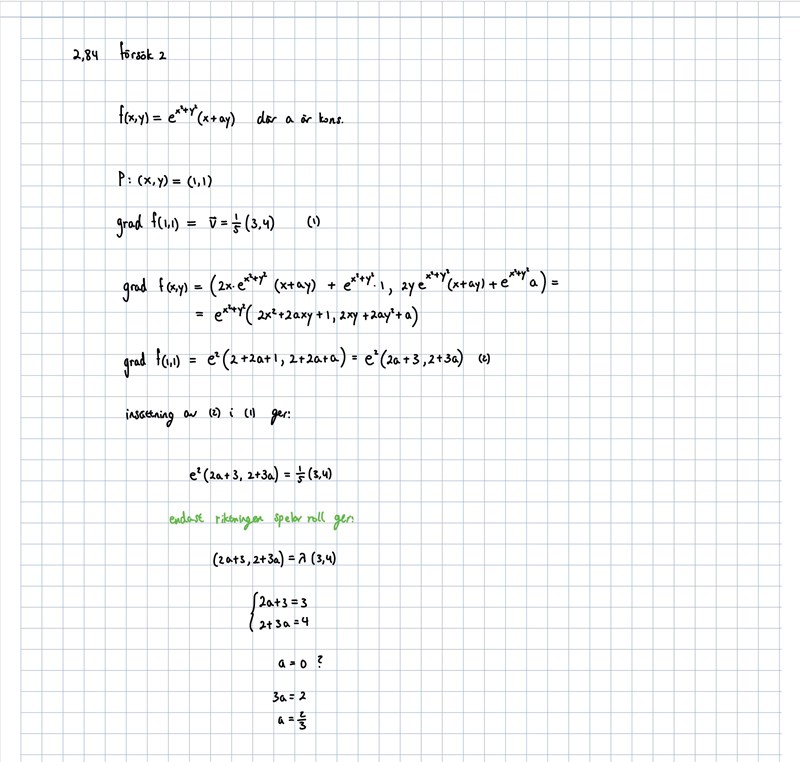 2,84 försök 2
f(x,y) = e^{x²+y²}(x+ay) där a är kons.
P: (x,y) = (1,1)
grad f(1,1) = v̄ = 1/5 (3,4) (1)
grad f(x,y) = (2x·e^{x²+y²} (x+ay) + e^{x²+y²}·1, 2y e^{x²+y²}(x+ay) + e^{x²+y²} a) =
= e^{x²+y²}(2x²+2axy+1, 2xy+2ay²+a)
grad f(1,1) = e²(2+2a+1, 2+2a+a) = e²(2a+3, 2+3a) (2)
insättning av (2) i (1) ger:
e²(2a+3, 2+3a) = 1/5 (3,4)
endast riktningen spelar roll ger:
(2a+3, 2+3a) = λ(3,4)
{2a+3 = 3
2+3a = 4
a = 0 ?
3a = 2
a = 2/3